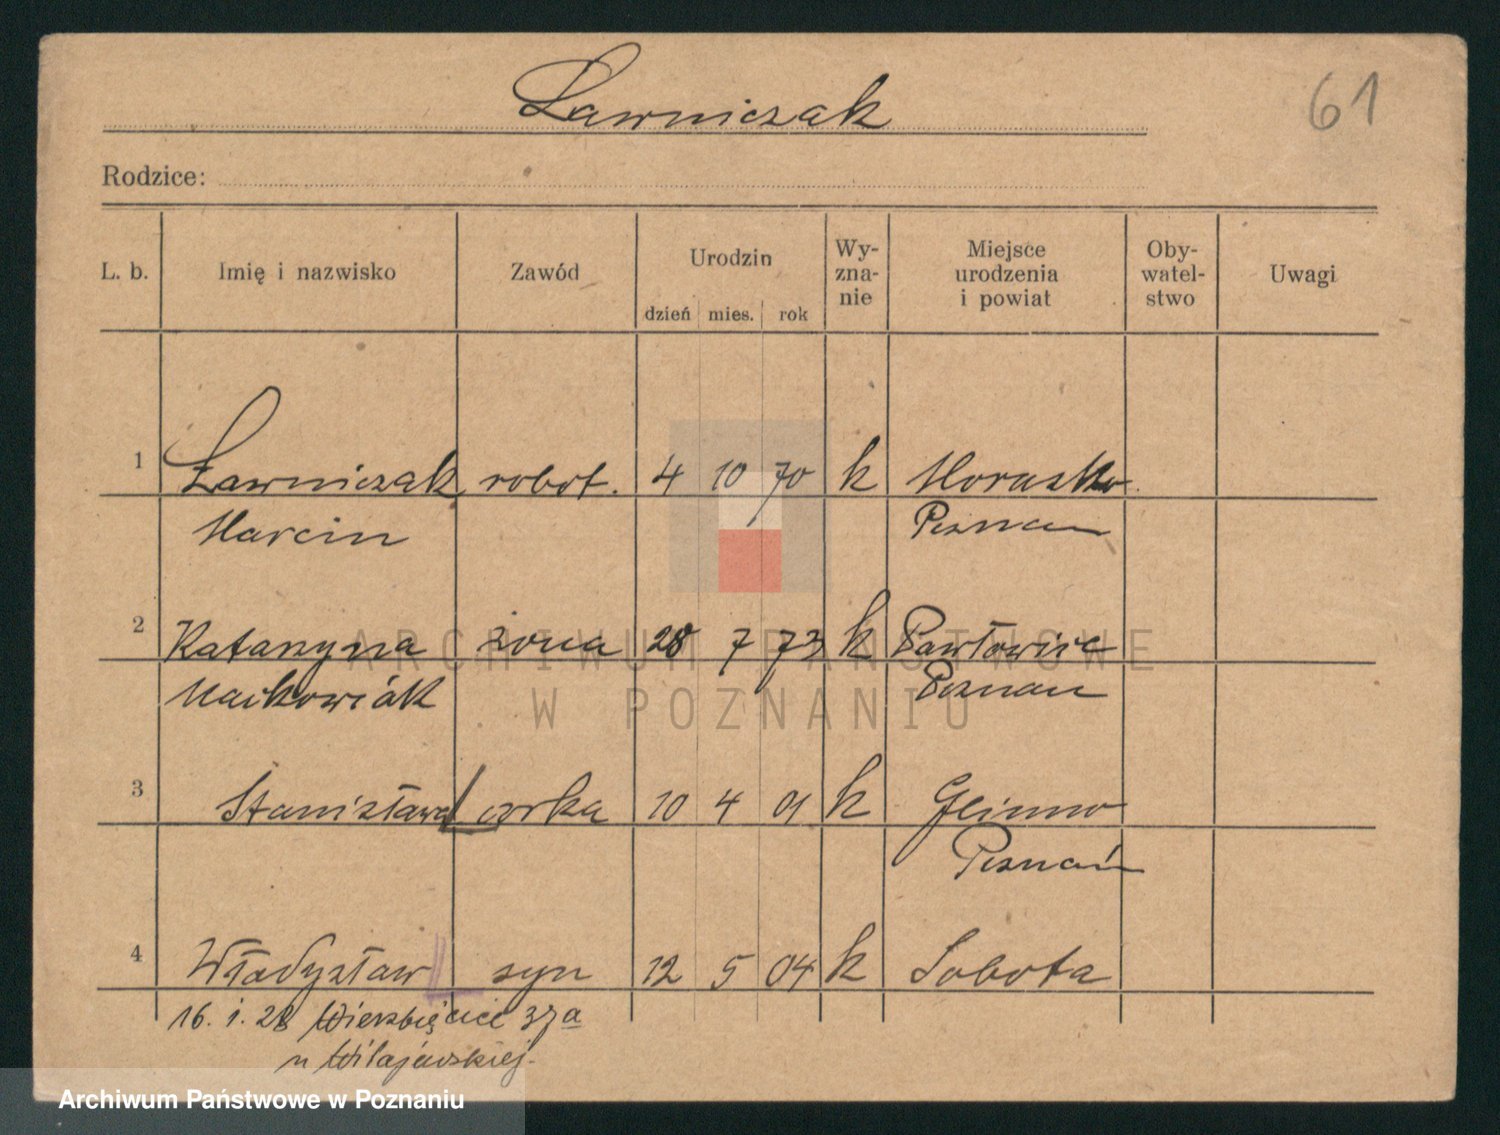 Ławniczak
61
Rodzice:
L. b. Imię i nazwisko Zawód Urodzin dzień mies. rok Wy-zna-nie Miejsce urodzenia i powiat Oby-watel-stwo Uwagi
1 Ławniczak robot. 4 10 70 k Morasko
Marcin Poznań
2 Katarzyna żona 28 7 73 k Pawłowice
Maćkowiak Poznań
3 Stanisława córka 10 4 01 k Glinno
Poznań
4 Władysław syn 12 5 04 k Sobota
16. 1. 28 Wierzbięcice 37a
u
ARCHIWUM PAŃSTWOWE
W POZNANIU
Archiwum Państwowe w Poznaniu